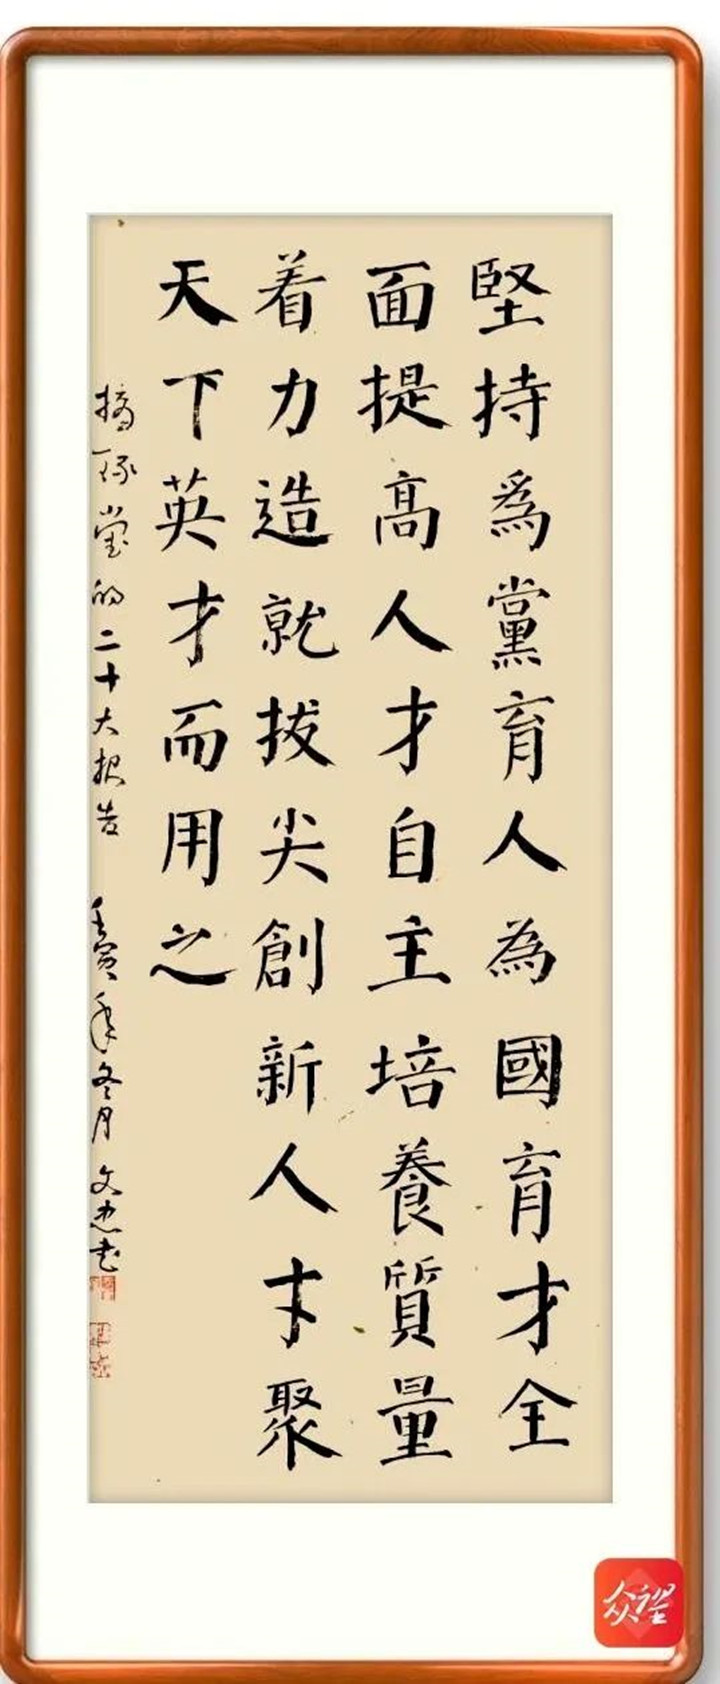 堅持爲黨育人為國育才全
面提髙人才自主培養質量
着力造就拔尖創新人才聚
天下英才而用之
摘録党的二十大报告 壬寅年冬月 文忠书
众望